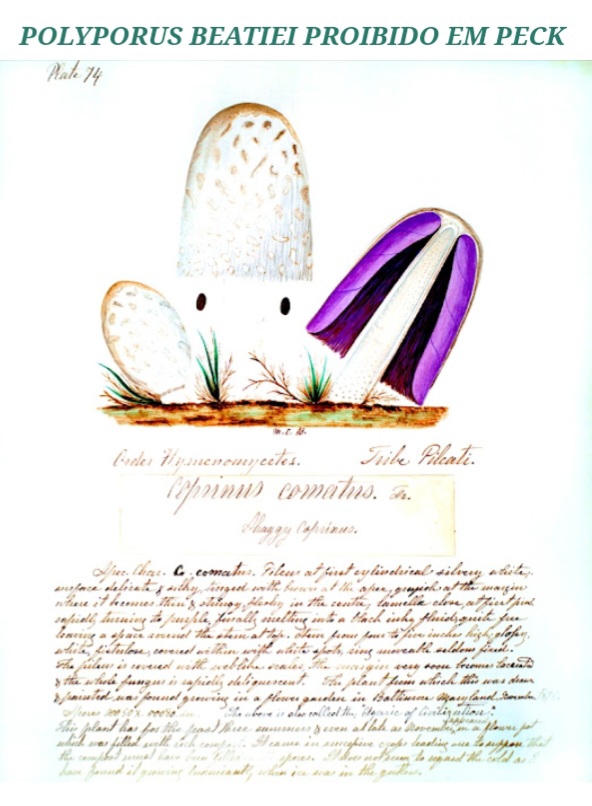 POLYPORUS BEATIEI PROIBIDO EM PECK
Plate 74
Order Hymenomycetes. Tribe Pileati.
Coprinus comatus. Fr.
Shaggy Coprinus.
Spec. Char. C. comatus. Pileus at first cylindrical silvery white,
surface delicate & silky, tinged with brown at the apex, greyish at the margin
where it becomes thin & stringy, fleshy in the centre, lamellæ close, at first pink
rapidly turning to purple, finally melting into a black inky fluid, quite free
leaving a space around the stem at top. Stem from four to five inches high, glossy,
white, fistulose, covered within with white spots, ring moveable seldom fixed.
The pileus is covered with web-like scales, the margin very soon becomes
& the whole fungus is rapidly deliquescent. The plant from which this was drawn
& painted was found growing in a flower garden in Baltimore Maryland November
Spores The above is also called the "Agaric of Civilization".
This plant has for the past three summers & even as late as November, appeared in a flower pot
which was filled with rich compost. It came in successive crops leading me to suppose that
the compost must have been spores. It does not seem to regard the cold as I
have found it growing luxuriantly when ice was in the gutters.